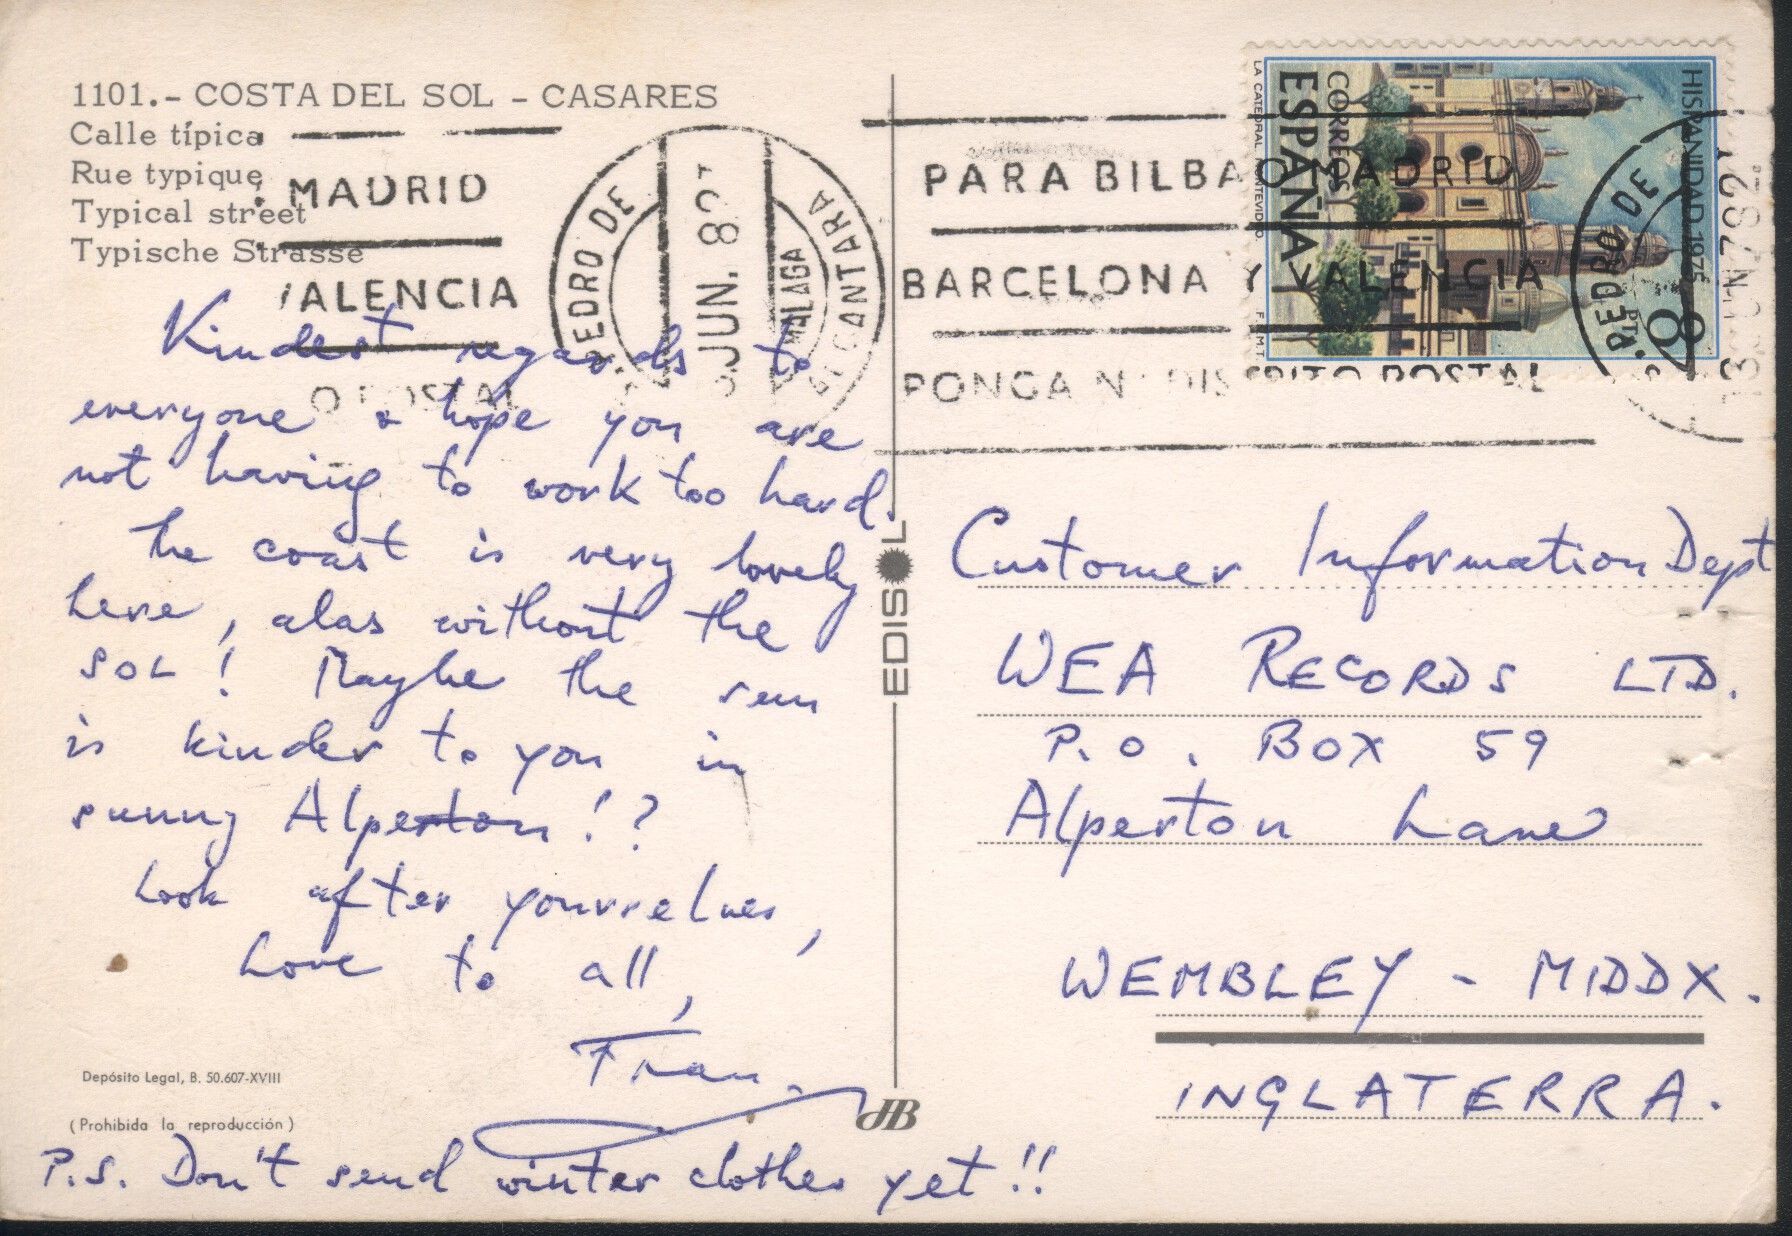 1101.- COSTA DEL SOL - CASARES
Calle típica
Rue typique
Typical street
Typische Strasse
MADRID
ALENCIA
O POSTAL
PEDRO DE
ALCANTARA
MALAGA
JUN. 82
PARA BILBAO MADRID
BARCELONA Y VALENCIA
PONGA Nº DISTRITO POSTAL
PEDRO DE
HISPANIDAD 1975
CORREOS
ESPAÑA
8 PTA
LA CATEDRAL MONTEVIDEO
F.N.M.T.
Kindest regards to
everyone & hope you are
not having to work too hard.
The coast is very lovely
here, alas without the
SOL! Maybe the sun
is kinder to you in
sunny Alperton!?
Look after yourselves,
Love to all,
Fran.
P.S. Don't send winter clothes yet!!
Depósito Legal, B. 50.607-XVIII
(Prohibida la reproducción)
EDISOL
JB
Customer Information Dept
WEA RECORDS LTD.
P.O. BOX 59
Alperton Lane
WEMBLEY - MIDDX.
INGLATERRA.